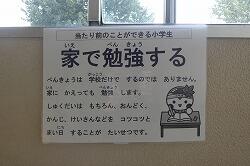 当たり前のことができる小学生
家で勉強する
べんきょうは 学校だけで するのでは ありません。
家に かえっても 勉強 します。
しゅくだいは もちろん、おんどく、
かんじ、けいさんなどを コツコツと
まい日 することが たいせつです。